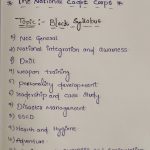 * The National Cadet Corps *
Topic:- Block Syllabus
1) NCC General
2) National Integration and awareness
3) Drill
4) weapon training
5) personality development
6) leadership and case study
7) Disaster Management
8) SSCD
9) Health and Hygiene
10) Adventure